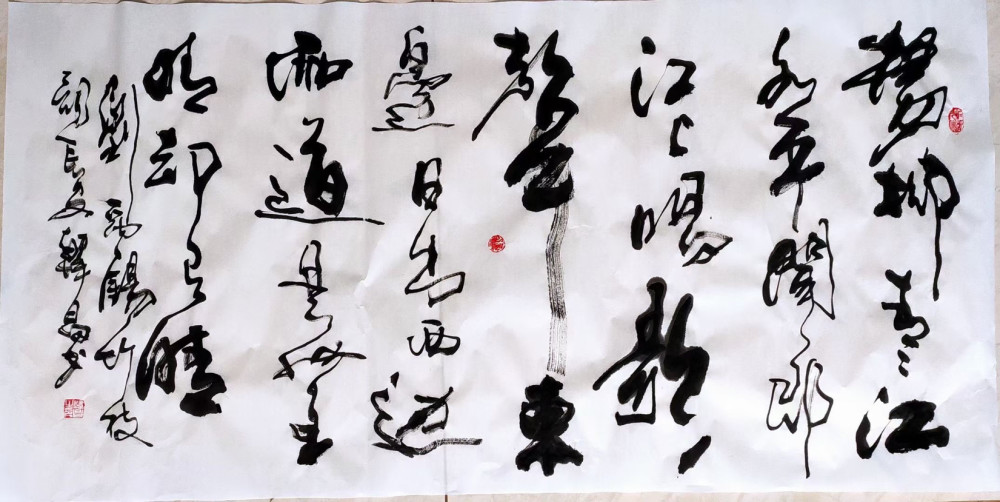 楊柳青々江
水平聞郎
江上唱歌
聲東
邊日出西邊
雨道是無
晴却有晴
劉禹錫竹枝
詞長安韓书